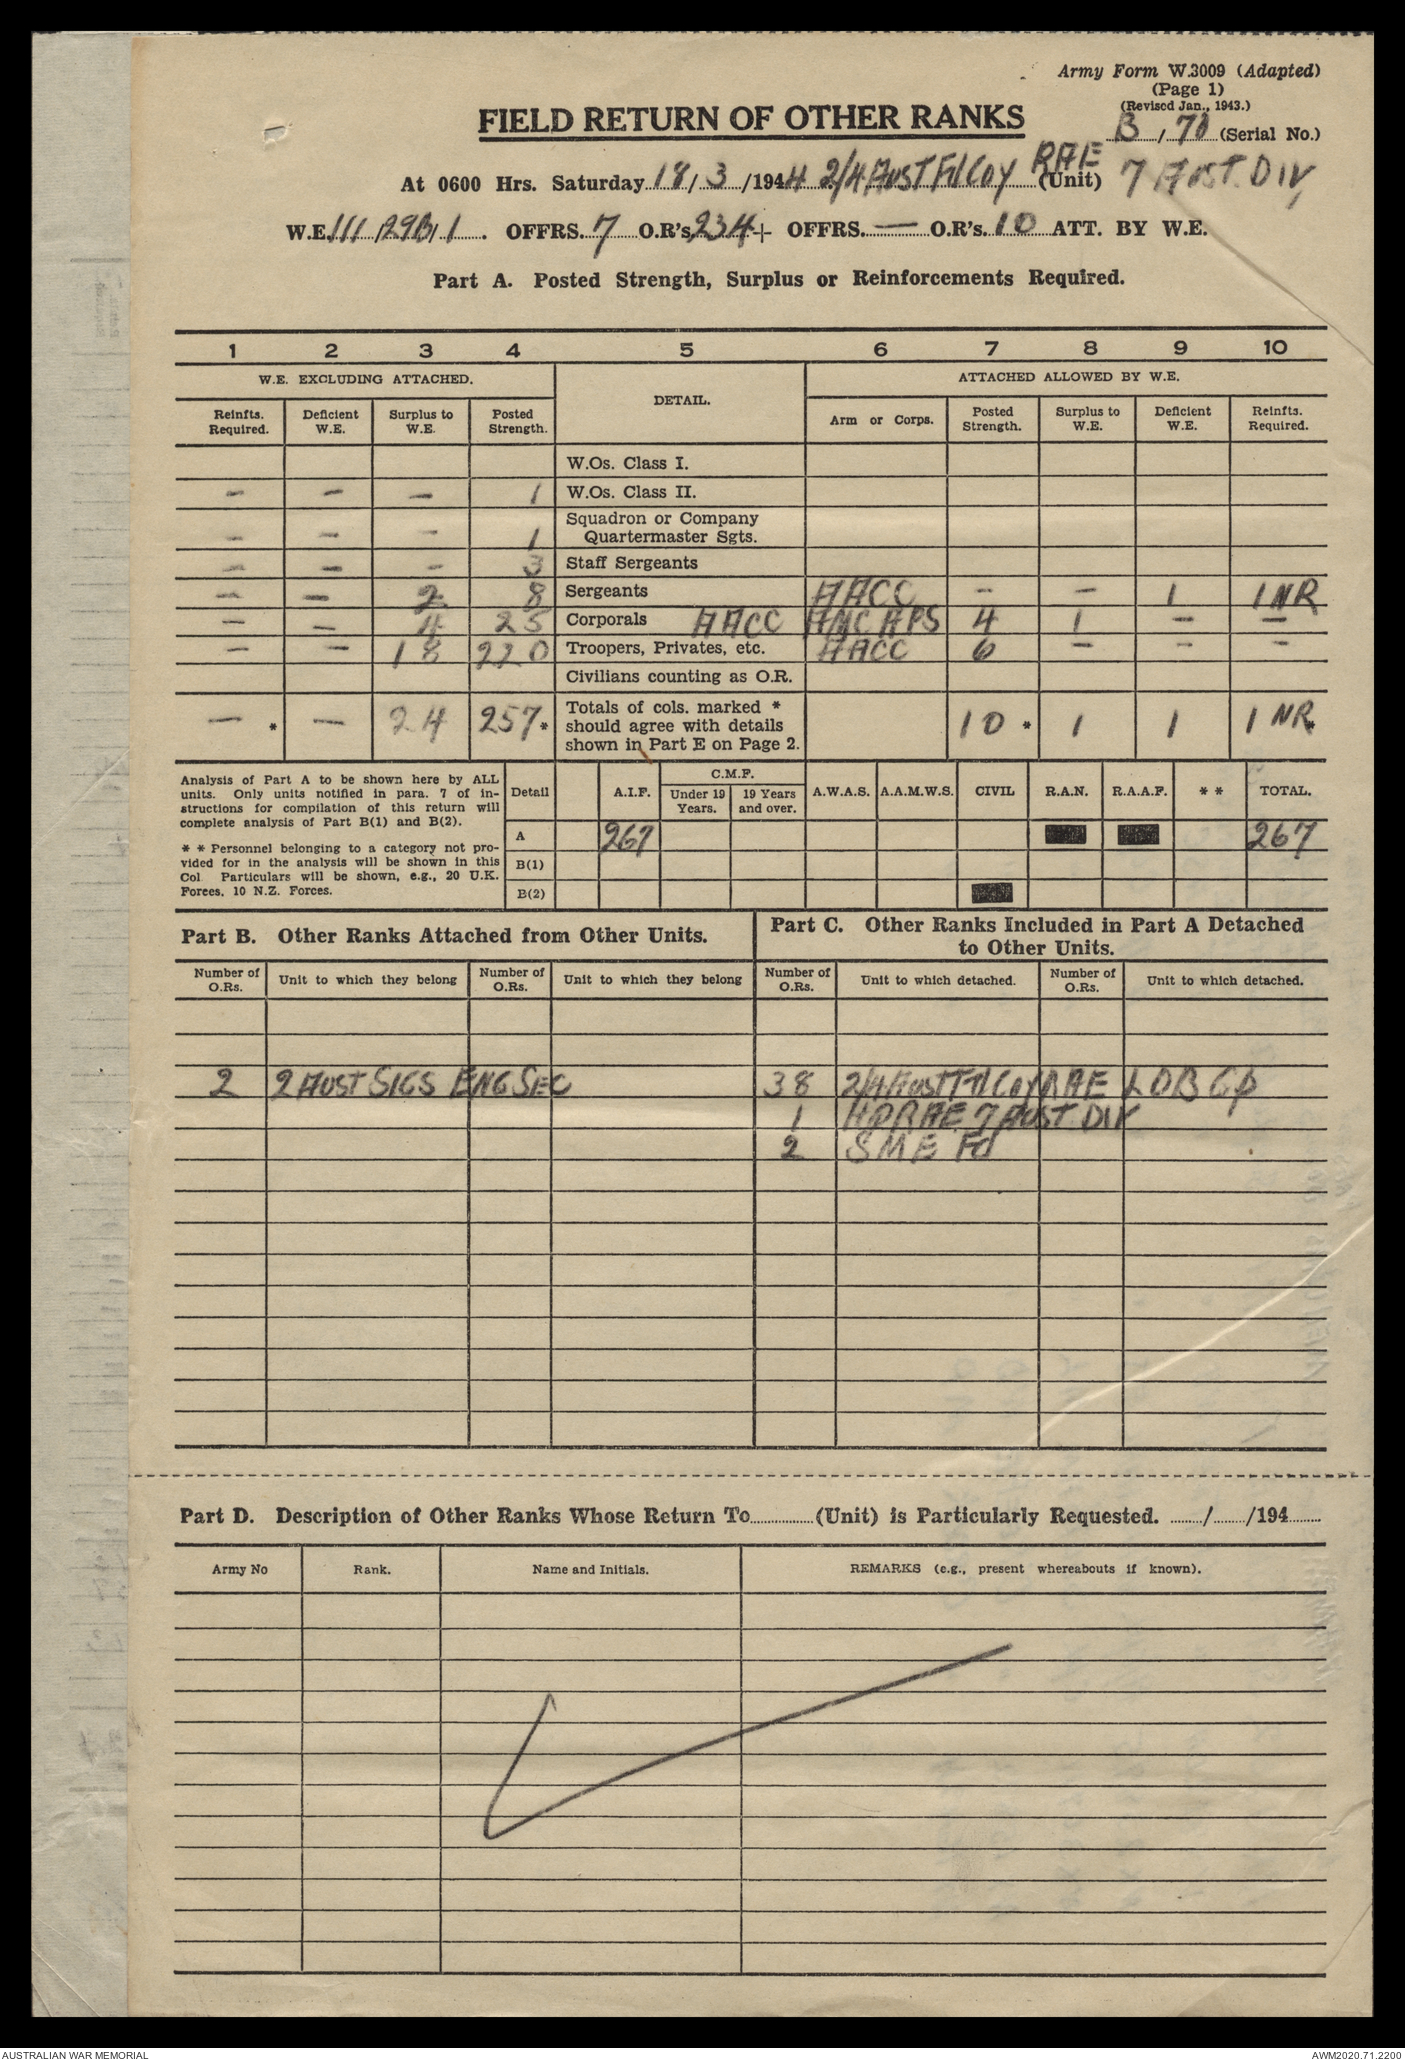 Army Form W.3009 (Adapted)
(Page 1)
(Revised Jan., 1943.)
FIELD RETURN OF OTHER RANKS
B / 70 (Serial No.)
At 0600 Hrs. Saturday 18/3/1944 2/4 AUST Fd Coy RAE (Unit) 7 AUST. DIV
W.E. III /29B/ 1. OFFRS. 7 O.R's. 234 + OFFRS. — O.R's. 10 ATT. BY W.E.
Part A. Posted Strength, Surplus or Reinforcements Required.
1 2 3 4 5 6 7 8 9 10
W.E. EXCLUDING ATTACHED. DETAIL. ATTACHED ALLOWED BY W.E.
Reinfts. Required. Deficient W.E. Surplus to W.E. Posted Strength. Arm or Corps. Posted Strength. Surplus to W.E. Deficient W.E. Reinfts. Required.
W.Os. Class I.
— — — 1 W.Os. Class II.
Squadron or Company
— — — 1 Quartermaster Sgts.
— — — 3 Staff Sergeants
— — 2 8 Sergeants AACC — — 1 1 NR
— — 4 25 Corporals AACC AMC APS 4 1 — —
— — 18 220 Troopers, Privates, etc. AACC 6 — — —
Civilians counting as O.R.
— * — 24 257 * Totals of cols. marked * should agree with details shown in Part E on Page 2. 10 * 1 1 1 NR *
Analysis of Part A to be shown here by ALL
units. Only units notified in para. 7 of in-
structions for compilation of this return will
complete analysis of Part B(1) and B(2).
* * Personnel belonging to a category not pro-
vided for in the analysis will be shown in this
Col. Particulars will be shown, e.g., 20 U.K.
Forces, 10 N.Z. Forces.
Detail A.I.F. C.M.F. Under 19 Years. 19 Years and over. A.W.A.S. A.A.M.W.S. CIVIL R.A.N. R.A.A.F. * * TOTAL.
A 267 267
B(1)
B(2)
Part B. Other Ranks Attached from Other Units.
Part C. Other Ranks Included in Part A Detached
to Other Units.
Number of O.Rs. Unit to which they belong Number of O.Rs. Unit to which they belong Number of O.Rs. Unit to which detached. Number of O.Rs. Unit to which detached.
2 2 AUST SIGS ENG SEC 38 2/4 AUST Fd Coy RAE LOB Gp
1 HQ RAE 7 AUST. DIV
2 SME Fd
Part D. Description of Other Ranks Whose Return To (Unit) is Particularly Requested. / /194
Army No Rank. Name and Initials. REMARKS (e.g., present whereabouts if known).
AUSTRALIAN WAR MEMORIAL
AWM2020.71.2200